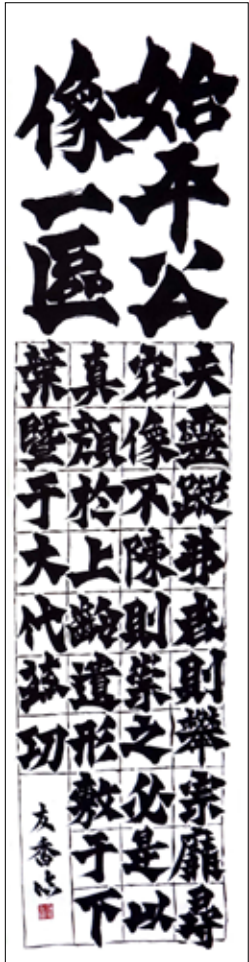 始平公
像一區
夫靈蹤弗啓則攀宗靡尋
容像不陳則崇之必是以
真顏於上齡遺形敷于下
葉暨于大代茲功
友香臨